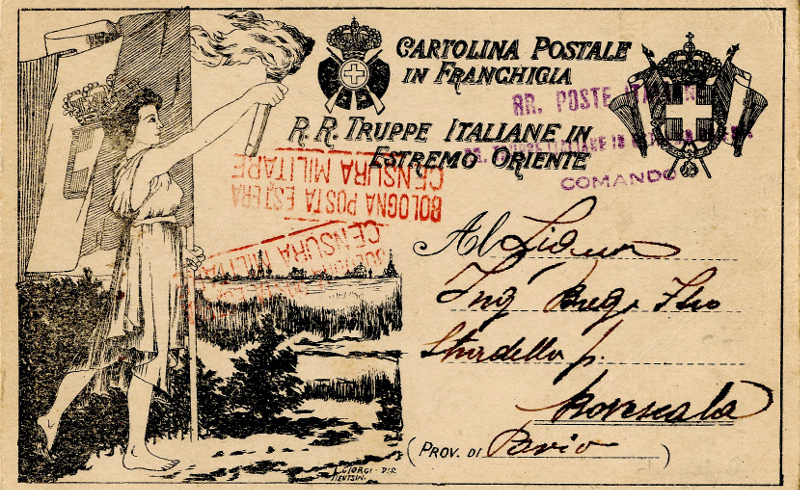 CARTOLINA POSTALE
IN FRANCHIGIA
R. R. TRUPPE ITALIANE IN
ESTREMO ORIENTE
RR. POSTE ITALIAN
RR. TRUPPE ITALIANE IN
COMANDO
BOLOGNA POSTA ESTERA
CENSURA MILITARE
BOLOGNA POSTA ESTERA
CENSURA MILITARE
Al Signor
Ing
p.
Rovescala
(PROV. DI Pavia)
GIORGI - DIS
TIENTSIN